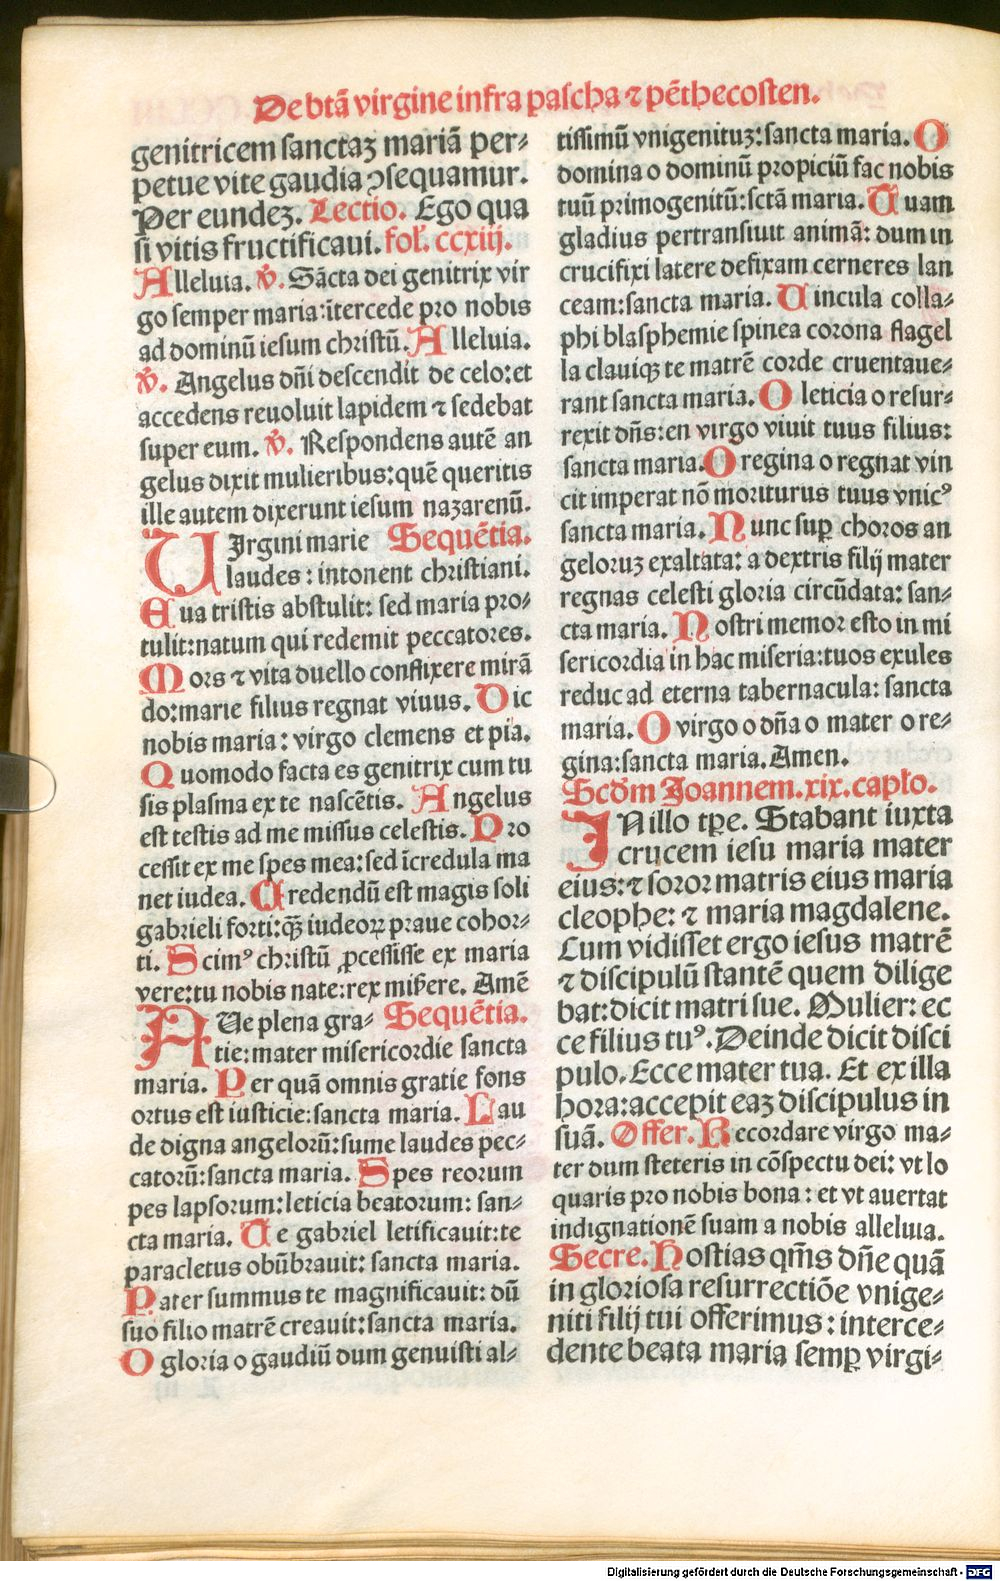 De btā virgine infra pascha ⁊ pēthecosten.
genitricem sanctaꝫ mariā per⸗
petue vite gaudia ↄsequamur.
Per eundeꝫ. Lectio. Ego qua
si vitis fructificaui. fol. ccxiij.
Alleluia. ℣. Sācta dei genitrix vir
go semper maria:ītercede pro nobis
ad dominū iesum christū. Alleluia.
℣. Angelus dn̄i descendit de celo:et
accedens reuoluit lapidem ⁊ sedebat
super eum. ℣. Respondens autē an
gelus dixit mulieribus:quē queritis
ille autem dixerunt iesum nazarenū.
UIrgini marie Sequētia.
laudes : intonent christiani.
Eua tristis abstulit: sed maria pro⸗
tulit:natum qui redemit peccatores.
Mors ⁊ vita duello conflixere mirā
do:marie filius regnat viuus. Dic
nobis maria : virgo clemens et pia.
Quomodo facta es genitrix cum tu
sis plasma ex te nascētis. Angelus
est testis ad me missus celestis. Pro
cessit ex me spes mea:sed īcredula ma
net iudea. Credendū est magis soli
gabrieli forti:qꝫ̄ iudeoꝝ praue cohor⸗
ti. Scimꝰ christū ꝓcessisse ex maria
vere:tu nobis nate:rex miẜere. Amē
AUe plena gra⸗ Sequētia.
tie:mater misericordie sancta
maria. Per quā omnis gratie fons
ortus est iusticie:sancta maria. Lau
de digna angelorū:sume laudes pec⸗
catorū:sancta maria. Spes reorum
pes lapsorum:leticia beatorum: san⸗
cta maria. Te gabriel letificauit:te
paracletus obūbrauit: sancta maria.
Pater summus te magnificauit: dū
suo filio matrē creauit:sancta maria.
O gloria o gaudiū dum genuisti al⸗
tissimū vnigenituꝫ:sancta maria. O
domina o dominū propiciū fac nobis
tuū primogenitū:sctā maria. Tuam
gladius pertransiuit animā: dum in
crucifixi latere defixam cerneres lan
ceam:sancta maria. Uincula colla⸗
phi blasphemie spinea corona flagel
la clauiqꝫ te matrē corde cruentaue⸗
rant sancta maria. O leticia o resur⸗
rexit dn̄s:en virgo viuit tuus filius:
sancta maria. O regina o regnat vin
cit imperat nō moriturus tuus vnicꝰ
sancta maria. Nunc suꝑ choros an
geloruꝫ exaltata: a dextris filij mater
regnas celesti gloria circūdata: san⸗
cta maria. Nostri memor esto in mi
sericordia in hac miseria:tuos exules
reduc ad eterna tabernacula: sancta
maria. O virgo o dn̄a o mater o re⸗
gina:sancta maria. Amen.
Scďm Joannem. xix. capło.
IN illo tꝑe. Stabant iuxta
crucem iesu maria mater
eius: ⁊ soror matris eius maria
cleophe: ⁊ maria magdalene.
Cum vidisset ergo iesus matrē
⁊ discipulū stantē quem dilige
bat: dicit matri sue. Mulier: ec
ce filius tuꝰ. Deinde dicit disci
pulo. Ecce mater tua. Et ex illa
hora:accepit eaꝫ discipulus in
suā. Offer. Recordare virgo ma⸗
ter dum steteris in cōspectu dei: vt lo
quaris pro nobis bona : et vt auertat
indignationē suam a nobis alleluia.
Secre. Hostias qm̄s dn̄e quā
in gloriosa resurrectiōe vnige⸗
niti filij tui offerimus : interce⸗
dente beata maria semꝑ virgi⸗
Digitalisierung gefördert durch die Deutsche Forschungsgemeinschaft - DFG